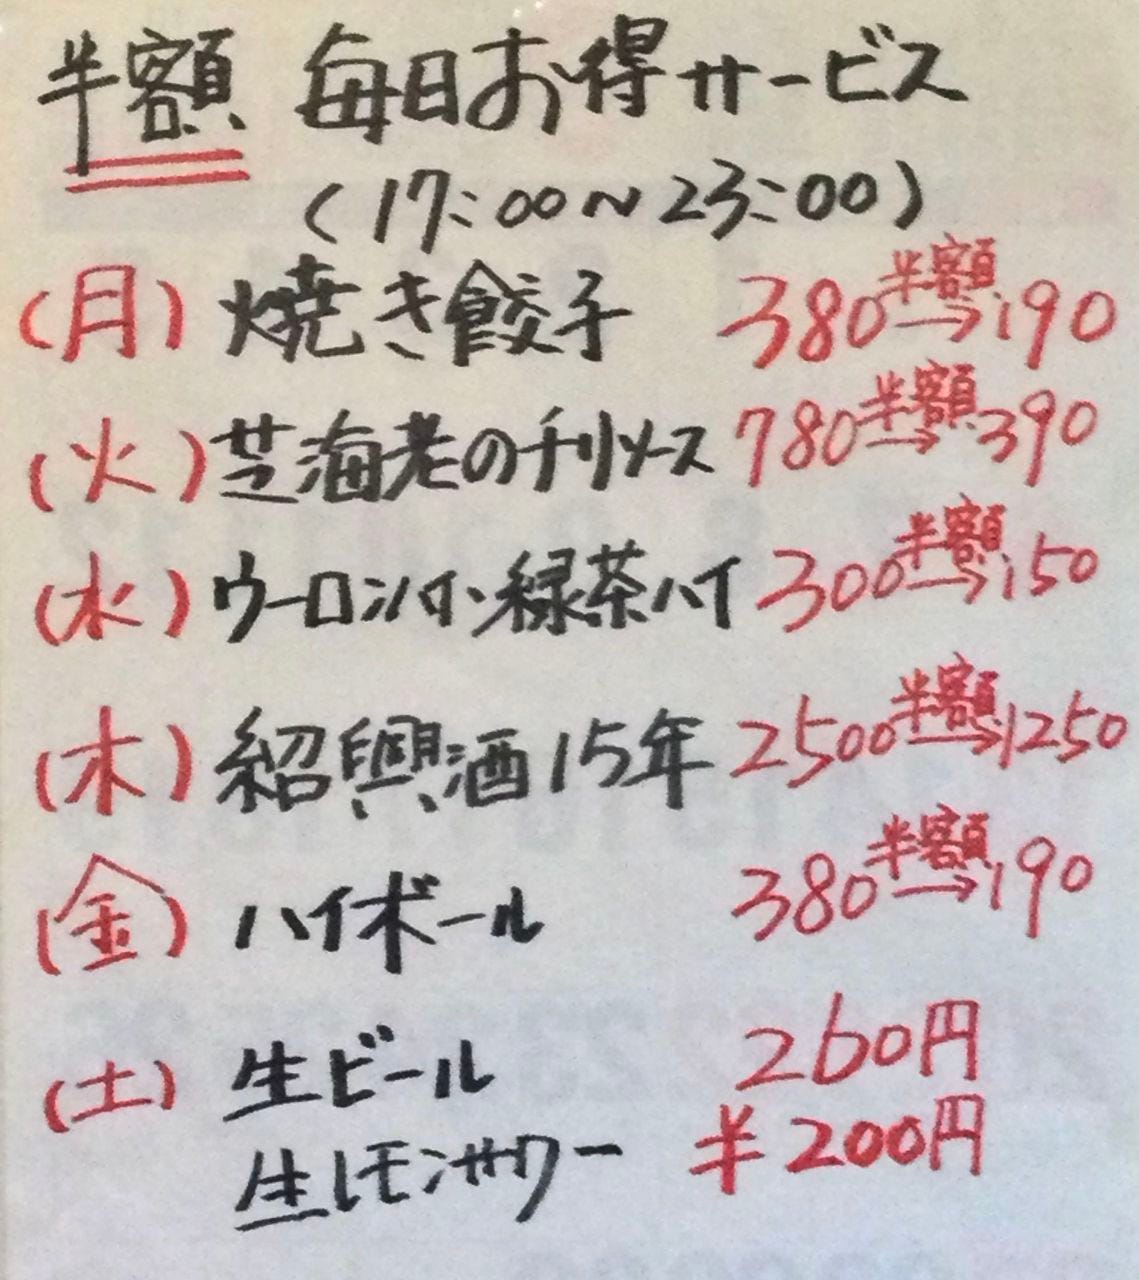 半額 毎日お得サービス
(17:00~23:00)
(月) 焼き餃子 380半額→190
(火) 芝海老のチリソース 780半額→390
(水) ウーロンハイ・緑茶ハイ 300半額→150
(木) 紹興酒15年 2500半額→1250
(金) ハイボール 380半額→190
(土) 生ビール 260円
生レモンサワー 半200円